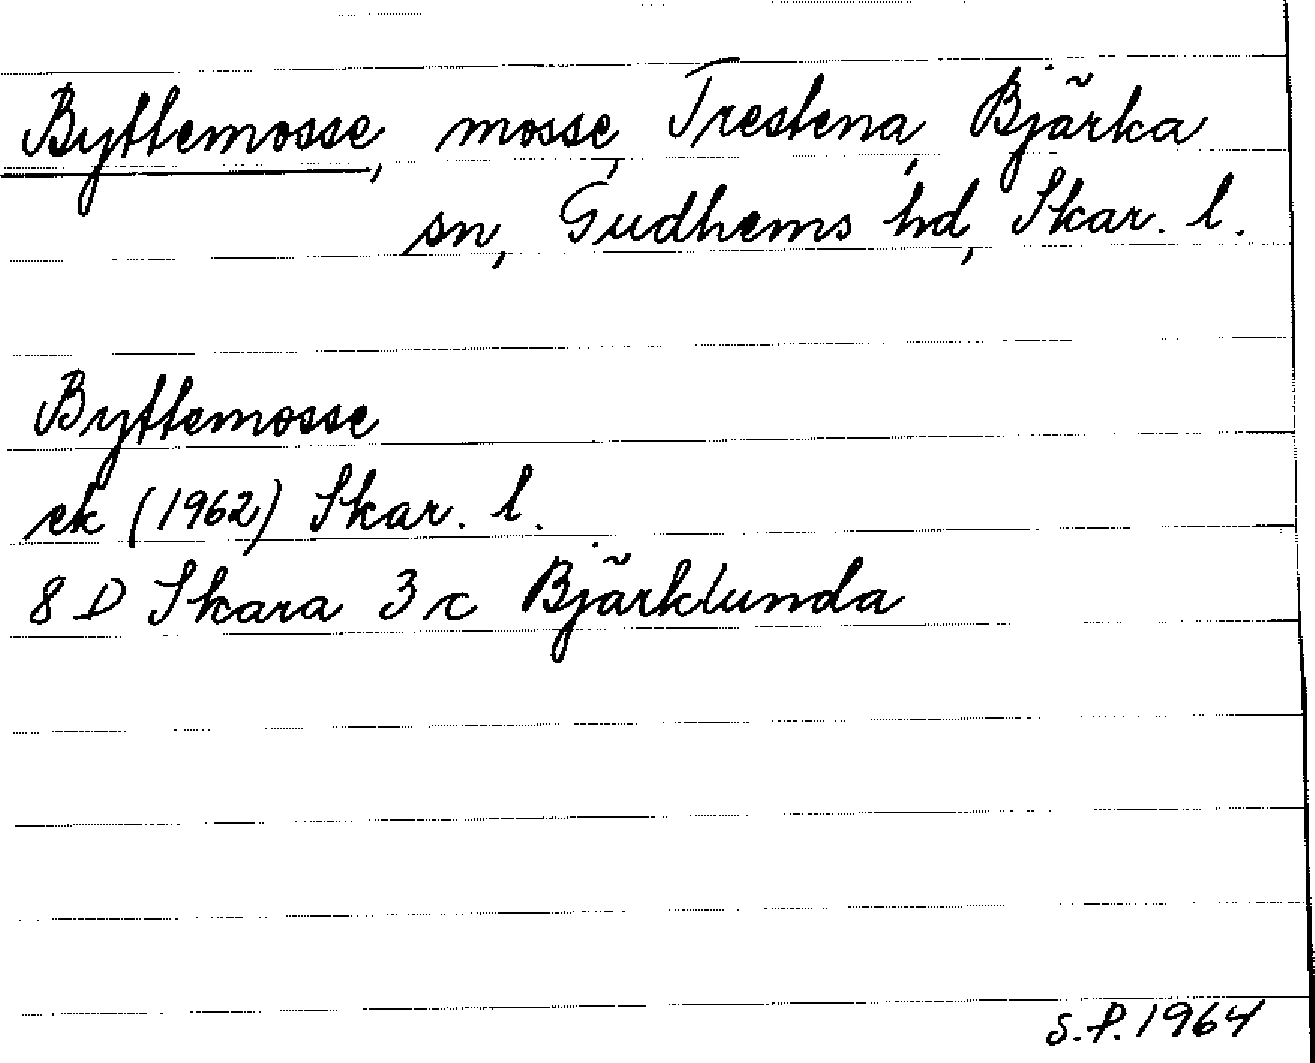 Byttemosse, mosse, Trestena, Bjärka
sn, Gudhems hd, Skar. l.
Byttemosse
ek (1962) Skar. l.
8 D Skara 3 c Bjärklunda
S.P. 1964